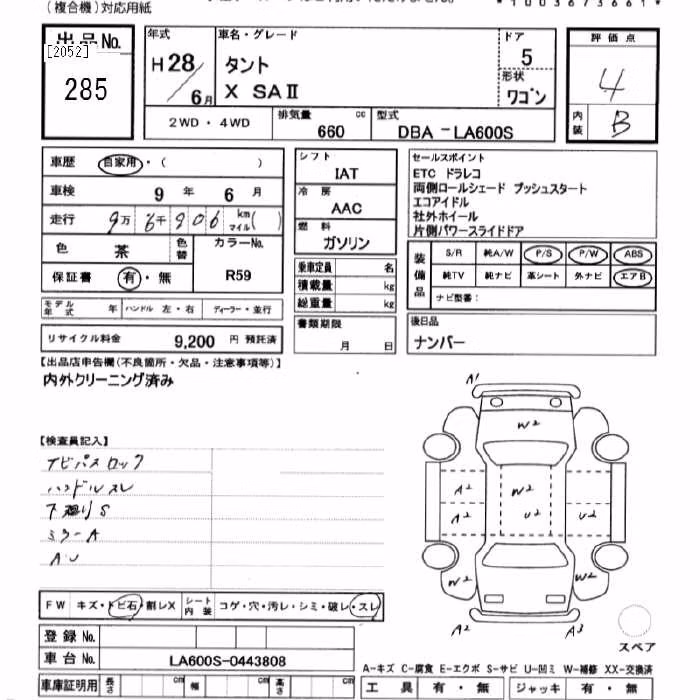 (複合機)対応用紙
*1003673661*
出品No.
[2052]
285
年式
H28/6月
車名・グレード
タント
X SAⅡ
ドア
5
形状
ワゴン
評価点
4
内装
B
2WD・4WD
排気量 cc
660
型式
DBA-LA600S
車歴 自家用・( )
車検 9年 6月
走行 9万6千906 km マイル( )
色 茶 色替
カラーNo.
R59
保証書 有・無
モデル年式 年 ハンドル 左・右 ディーラー・並行
リサイクル料金 9,200 円 預託済
シフト
IAT
冷房
AAC
燃料
ガソリン
乗車定員 名
積載量 kg
総重量 kg
書類期限
月 日
セールスポイント
ETC ドラレコ
両側ロールシェード プッシュスタート
エコアイドル
社外ホイール
片側パワースライドドア
装備品
S/R 純A/W P/S P/W ABS
純TV 純ナビ 革シート 外ナビ エアB
ナビ型番:
後日品
ナンバー
【出品店申告欄(不良箇所・欠品・注意事項等)】
内外クリーニング済み
【検査員記入】
ハンドルスレ
下廻りS
ミラーA
AU
FW キズ・トビ石・割レX シート内装 コゲ・穴・汚レ・シミ・破レ・スレ
登録No.
車台No. LA600S-0443808
車庫証明用 cm 幅 cm 高さ cm
A1
W2
A2
W2
A2
U2
U2
W2
W2
A2
A3
スペア
A-キズ C-腐食 E-エクボ S-サビ U-凹ミ W-補修 XX-交換済
工具 有・無 ジャッキ 有・無